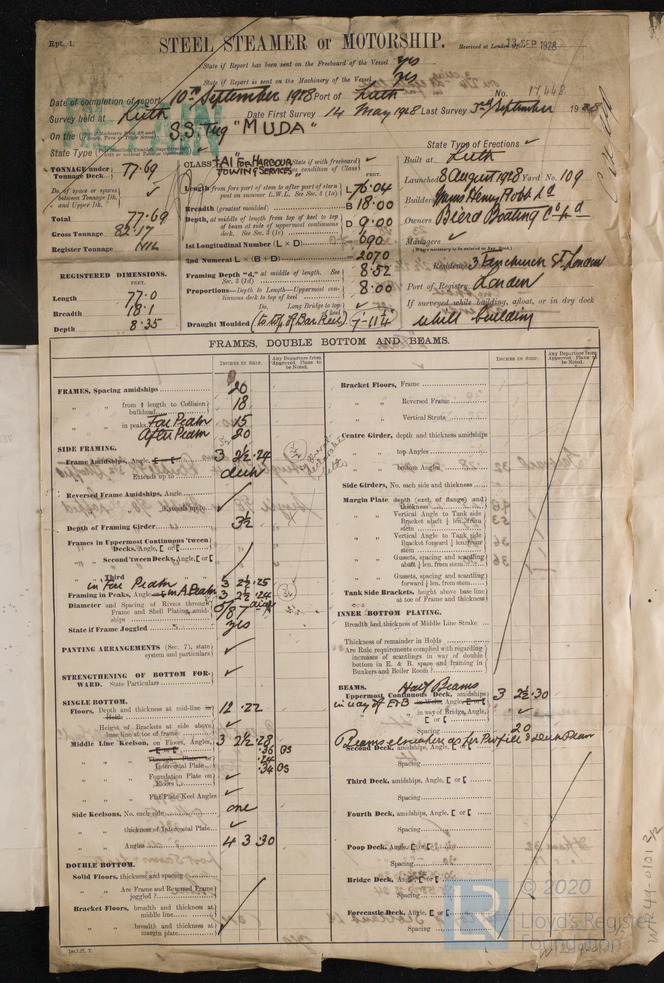 Rpt. 1.
STEEL STEAMER or MOTORSHIP.
Received at London Office 13 SEP 1928
State if Report has been sent on the Freeboard of the Vessel yes
State if Report is sent on the Machinery of the Vessel yes
Date of completion of report 10th September 1928 Port of Leith No. 17448
Survey held at Leith Date First Survey 14 May 1928 Last Survey 3rd September 1928
On the S.S. Tug "MUDA"
State Type
State Type of Erections
TONNAGE under Tonnage Deck 77.69
Do. of space or spaces between Tonnage Dk. and Upper Dk.
Total 77.69
Gross Tonnage 82.17
Register Tonnage
REGISTERED DIMENSIONS.
FEET.
Length 77.0
Breadth 18.1
Depth 8.35
CLASS +A1 FOR HARBOUR TOWING SERVICES State if with freeboard
FEET.
Length from fore part of stem to after part of stern post on summer L.W.L. See Sec. 3 (1a) L 76.04
Breadth (greatest moulded) B 18.00
Depth, at middle of length from top of keel to top of beam at side of uppermost continuous deck. See Sec. 3 (1c) D 9.00
1st Longitudinal Number (L × D) 690
2nd Numeral L × (B + D) 2070
Framing Depth "d," at middle of length. See Sec. 3 (1d) 8.52
Proportions—Depth to Length—Uppermost continuous deck to top of keel 8.00
Do. Long Bridge to top of keel
Draught Moulded (to top of Bar Keel) 7-11¼
Built at Leith
Launched 8 August 1928 Yard No. 109
Builders Henry Robb Ld
Owners Boating Co Ld
Managers
(Where necessary to be entered in Reg. Book.)
Residence 3 Fenchurch St London
Port of Registry London
If surveyed while building, afloat, or in dry dock
while building
FRAMES, DOUBLE BOTTOM AND BEAMS.
INCHES IN SHIP.
Any Departure from Approved Plans to be Noted.
INCHES IN SHIP.
Any Departure from Approved Plans to be Noted.
FRAMES, Spacing amidships 20
" " from ⅗ length to Collision bulkhead 18
" " in peaks Fore Peak 15
After Peak 20
SIDE FRAMING.
Frame Amidships, Angle, 3 2½ .24
" " Extends up to deck
Reversed Frame Amidships, Angle
" " Extends up to
Depth of Framing Girder 3½
Frames in Uppermost Continuous 'tween Decks, Angle, [ or [
" Second 'tween Decks, Angle, [ or [
" Third
in Fore Peak 3 2½ .25
Framing in Peaks, Angle in A Peak 3 2½ .24
Diameter and Spacing of Rivets through Frame and Shell Plating amidships 5/8 7
State if Frame Joggled yes
PANTING ARRANGEMENTS (Sec. 7), state system and particulars
STRENGTHENING OF BOTTOM FORWARD. State Particulars
SINGLE BOTTOM.
Floors, Depth and thickness at mid-line in Hold 12 .22
" Height of Brackets at side above base line at toe of frame
Middle Line Keelson, on Floors, Angles 3 2½ .28
.36 OS
" " Through Plate or Intercostal Plate .24
.34 OS
" " Foundation Plate on Floors
" " Flat Plate Keel Angles
Side Keelsons, No. each side one
" " thickness of Intercostal Plate
" " Angles 4 3 .30
DOUBLE BOTTOM.
Solid Floors, thickness and spacing
" " Are Frame and Reversed Frame joggled?
Bracket Floors, breadth and thickness at middle line
" " breadth and thickness at margin plate
Bracket Floors, Frame
" " Reversed Frame
" " Vertical Struts
Centre Girder, depth and thickness amidships
" " top Angles
" " bottom Angles
Side Girders, No. each side and thickness
Margin Plate depth (excl. of flange) and thickness
" " Vertical Angle to Tank side Bracket abaft ¼ len. from stem
" " Vertical Angle to Tank side Bracket forward ¼ len. from stem
" " Gussets, spacing and scantling abaft ¼ len. from stem
" " Gussets, spacing and scantling forward ¼ len. from stem
Tank Side Brackets, height above base line at toe of Frame and thickness
INNER BOTTOM PLATING.
Breadth and thickness of Middle Line Strake
Thickness of remainder in Holds
Are Rule requirements complied with regarding increases of scantlings in way of double bottom in E. & B. space and framing in Bunkers and Boiler Room?
BEAMS. Half Beams
Uppermost Continuous Deck, amidships in way of E&B Angle, [ or [ 3 2½ .30
" " in way of Bridge, Angle, [ or [
Spacing 20
Beams elsewhere as per Profile & Deck Plan
Second Deck, amidships, Angle, [ or [
Spacing
Third Deck, amidships, Angle, [ or [
Spacing
Fourth Deck, amidships, Angle, [ or [
Spacing
Poop Deck, Angle, [ or [
Spacing
Bridge Deck, Angle, [ or [
Spacing
Forecastle Deck, Angle, [ or [
Spacing
LR
© 2020
Lloyd's Register
Foundation